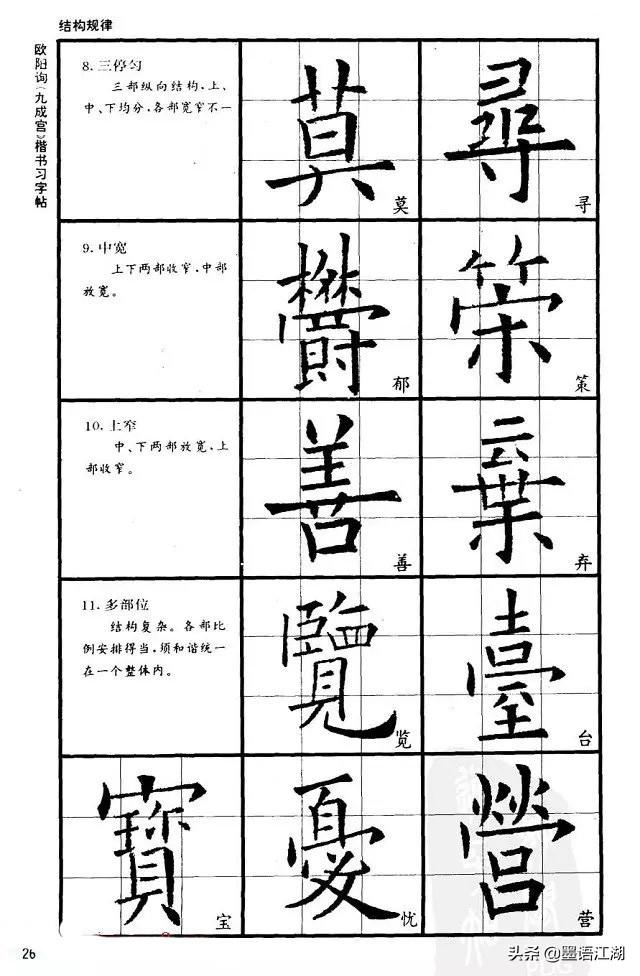 结构规律
欧阳询《九成宫》楷书习字帖
8. 三停匀
三部纵向结构,上、
中、下均分,各部宽窄不一
莫
莫
尋
寻
9. 中宽
上下两部收窄,中部
放宽。
欝
郁
策
策
10. 上窄
中、下两部放宽,上
部收窄。
善
善
棄
弃
11. 多部位
结构复杂。各部比
例安排得当,须和谐统一
在一个整体内。
覽
览
臺
台
寶
宝
憂
忧
營
营
26
头条 @墨语江湖